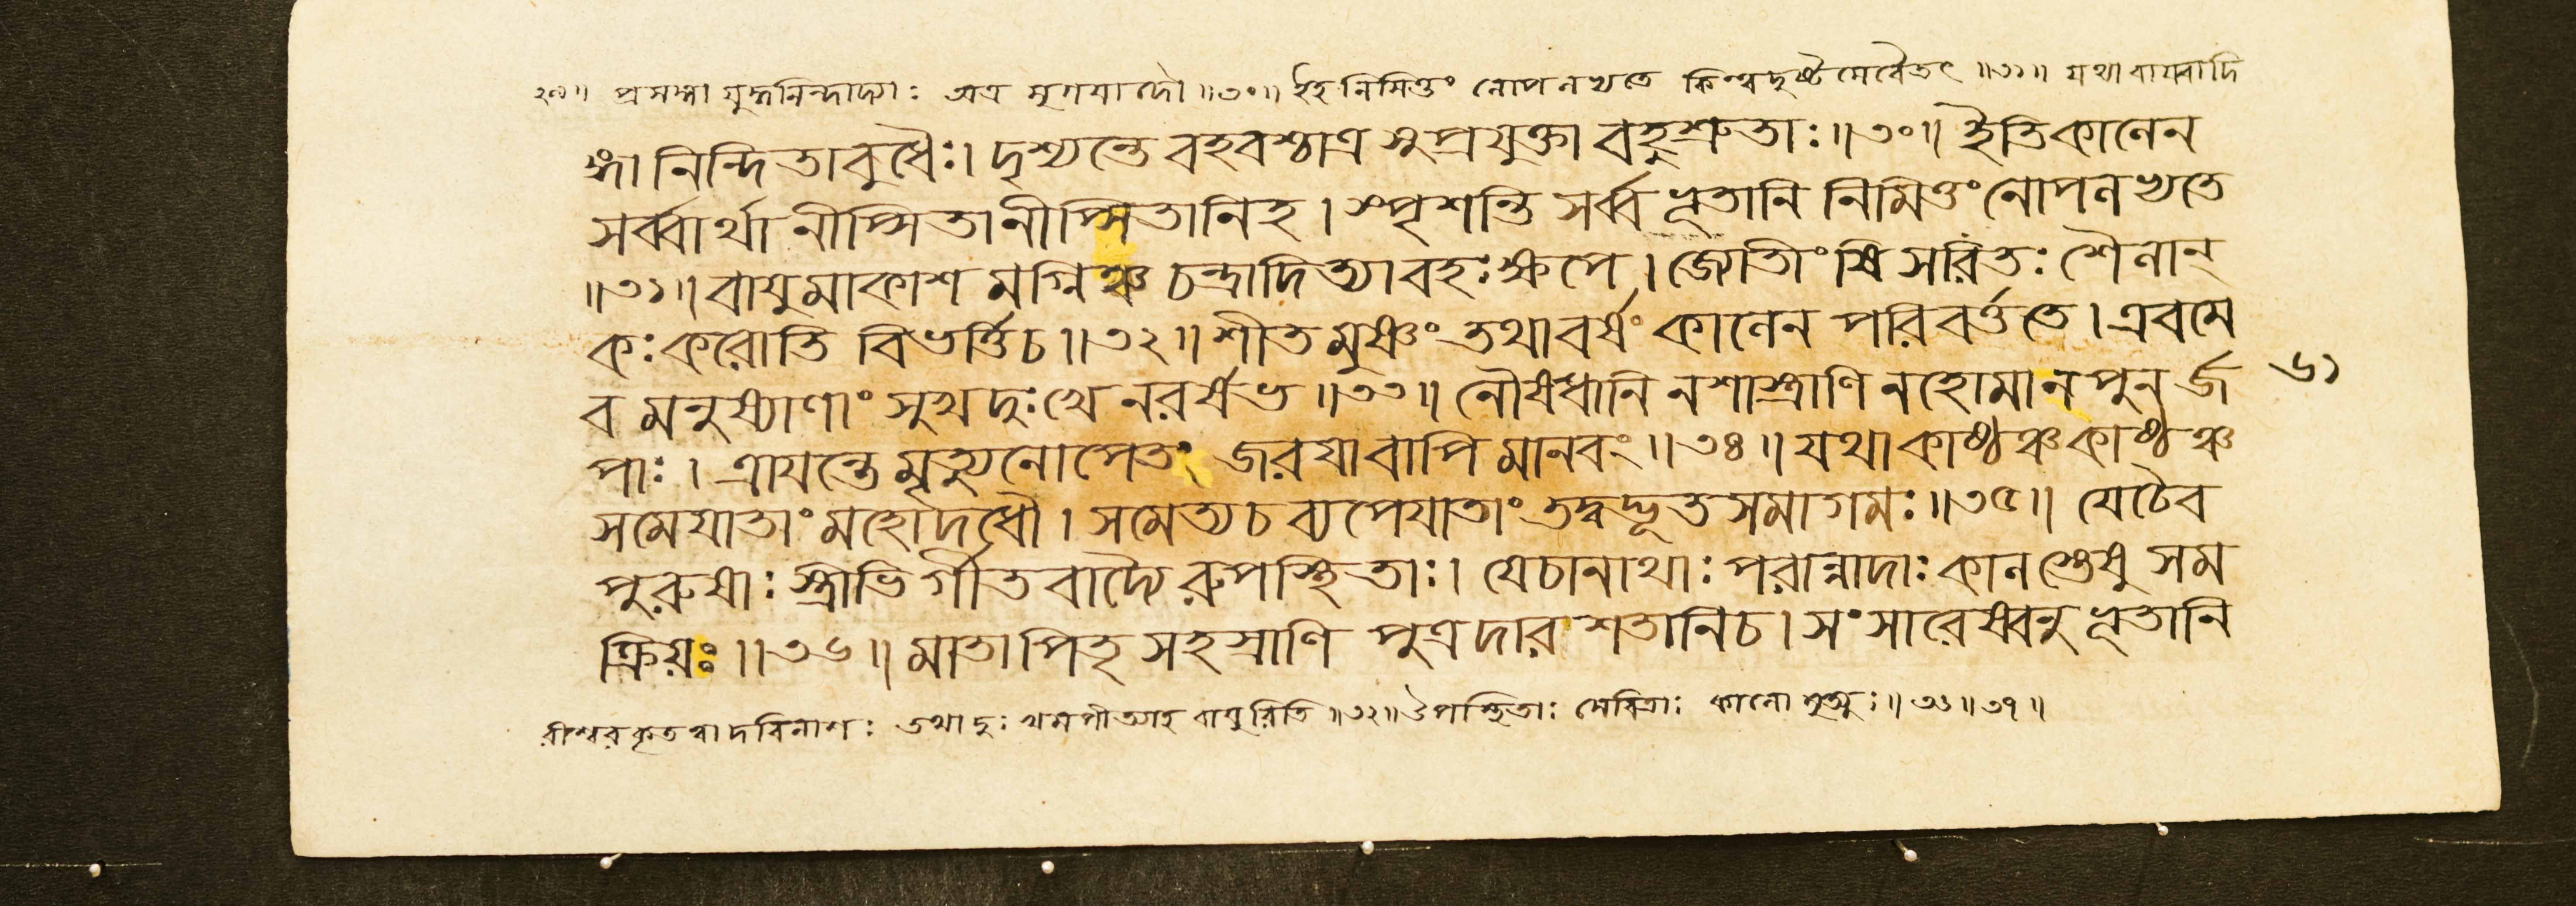 ২৯॥ প্রসক্তা যুক্তনিন্দাদ্যাঃ অত্র মৃগয়াদৌ ॥৩০॥ ইহ নিমিত্তং নোপলভ্যতে কিন্ত্বদৃষ্টমেবৈতৎ ॥৩১॥ যথা বায়্বাদি
ক্তা নিন্দিতাবুধৈঃ। দৃশ্যন্তে বহবশ্চাত্র সুপ্রযুক্তা বহুশ্রুতাঃ॥৩০॥ ইতিকালেন
সর্ব্বার্থানীপ্সিতানীপ্সিতানিহ। স্পৃশন্তি সর্ব্বভূতানি নিমিত্তংনোপলভ্যতে
॥৩১॥ বায়ুমাকাশমগ্নিঞ্চ চন্দ্রাদিত্যাবহঃক্ষপে। জ্যোতীংষি সরিতঃ শৈলান্
কঃকরোতি বিভর্ত্তিচ॥৩২॥ শীতমুষ্ণংতথাবর্ষং কালেন পরিবর্ত্ততে। এবমে
ব মনুষ্যাণাং সুখদুঃখে নরর্ষভ॥৩৩॥ নৌষধানি নশাস্ত্রাণি নহোমানপুনর্জ
৬১
পাঃ। ত্রায়ন্তে মৃত্যুনোপেতং জরয়াবাপি মানবং॥৩৪॥ যথাকাষ্ঠঞ্চকাষ্ঠঞ্চ
সমেয়াতাং মহোদধৌ। সমেত্যচ ব্যপেয়াতাং তদ্বদ্ভূতসমাগমঃ॥৩৫॥ যেচৈব
পুরুষাঃ স্ত্রীভির্গীতবাদ্যৈরুপস্থিতাঃ। যেচানাথাঃ পরান্নাদাঃ কালস্তেষু সম
ক্রিয়ঃ॥৩৬॥ মাতাপিতৃসহস্রাণি পুত্রদারশতানিচ। সংসারেষ্বনুভূতানি
রীশ্বরকৃতত্বাদবিনাশঃ তথাদুঃখমপীত্যাহ বায়ুরিতি ॥৩২॥ উপস্থিতাঃ সেবিতাঃ কালো মৃত্যুঃ॥৩৬॥৩৭॥